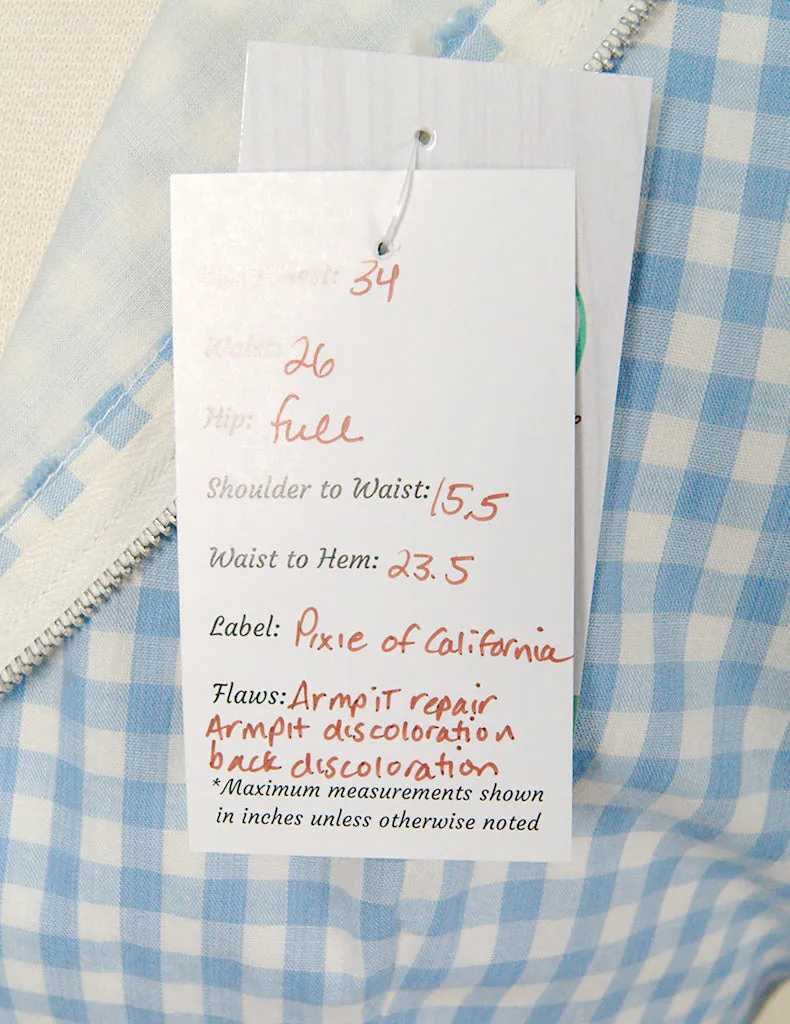 34
Waist: 26
Hip: full
Shoulder to Waist: 15.5
Waist to Hem: 23.5
Label: Pixie of California
Flaws: Armpit repair
Armpit discoloration
back discoloration
*Maximum measurements shown
in inches unless otherwise noted